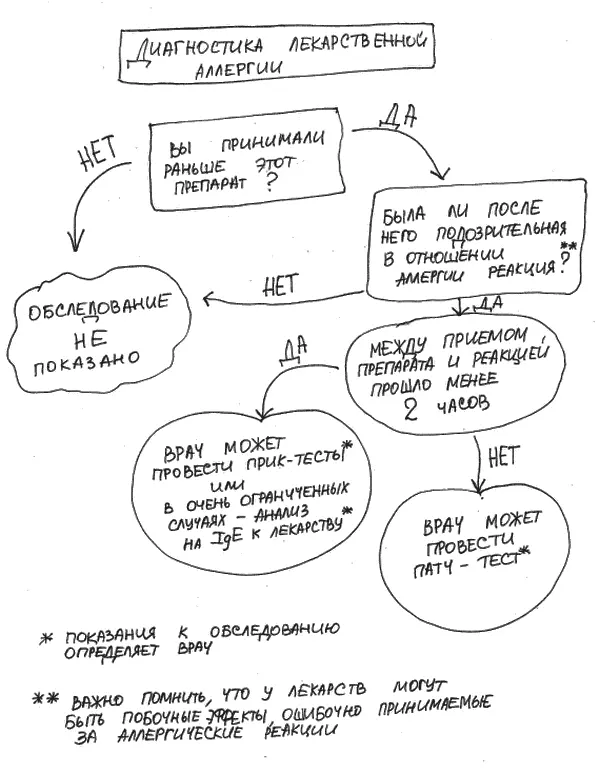 ДИАГНОСТИКА ЛЕКАРСТВЕННОЙ
АЛЛЕРГИИ
ВЫ ПРИНИМАЛИ
РАНЬШЕ ЭТОТ
ПРЕПАРАТ?
НЕТ
ДА
БЫЛА ЛИ ПОСЛЕ
НЕГО ПОДОЗРИТЕЛЬНАЯ
В ОТНОШЕНИИ
АЛЛЕРГИИ РЕАКЦИЯ?**
НЕТ
ДА
ОБСЛЕДОВАНИЕ
НЕ
ПОКАЗАНО
МЕЖДУ ПРИЕМОМ
ПРЕПАРАТА И РЕАКЦИЕЙ
ПРОШЛО МЕНЕЕ
2 ЧАСОВ
ДА
НЕТ
ВРАЧ МОЖЕТ
ПРОВЕСТИ ПРИК-ТЕСТЫ*
ИЛИ
В ОЧЕНЬ ОГРАНИЧЕННЫХ
СЛУЧАЯХ - АНАЛИЗ
НА IgE К ЛЕКАРСТВУ*
ВРАЧ МОЖЕТ
ПРОВЕСТИ
ПАТЧ - ТЕСТ*
* ПОКАЗАНИЯ К ОБСЛЕДОВАНИЮ
ОПРЕДЕЛЯЕТ ВРАЧ
** ВАЖНО ПОМНИТЬ, ЧТО У ЛЕКАРСТВ МОГУТ
БЫТЬ ПОБОЧНЫЕ ЭФФЕКТЫ, ОШИБОЧНО ПРИНИМАЕМЫЕ
ЗА АЛЛЕРГИЧЕСКИЕ РЕАКЦИИ